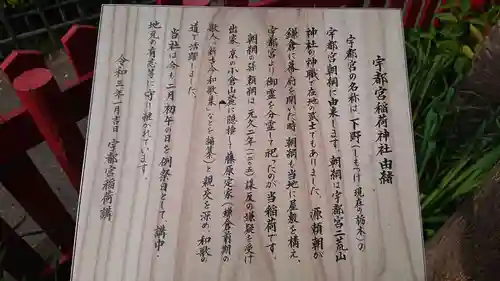 宇都宮稲荷神社 由緒
宇都宮の名称は、下野(しもつけ 現在の栃木)の
宇都宮朝綱に由来します。朝綱は宇都宮二荒山
神社の神職・在地の武士でもありました。源頼朝が
鎌倉に幕府を開いた時、朝綱も当地に屋敷を構え、
宇都宮より御霊を分霊して祀ったのが当稲荷です。
朝綱の孫頼綱は元久二年(一二〇五)謀反の嫌疑を受け
出家、京の小倉山麓に隠棲し、藤原定家(鎌倉前期の
歌人「新古今和歌集」などを編集)と親交を深め、和歌の
道で活躍しました。
当社は今も二月初午の日を例祭日として、講中・
地元の有志等に守り継がれています。
令和三年一月吉日 宇都宮稲荷講